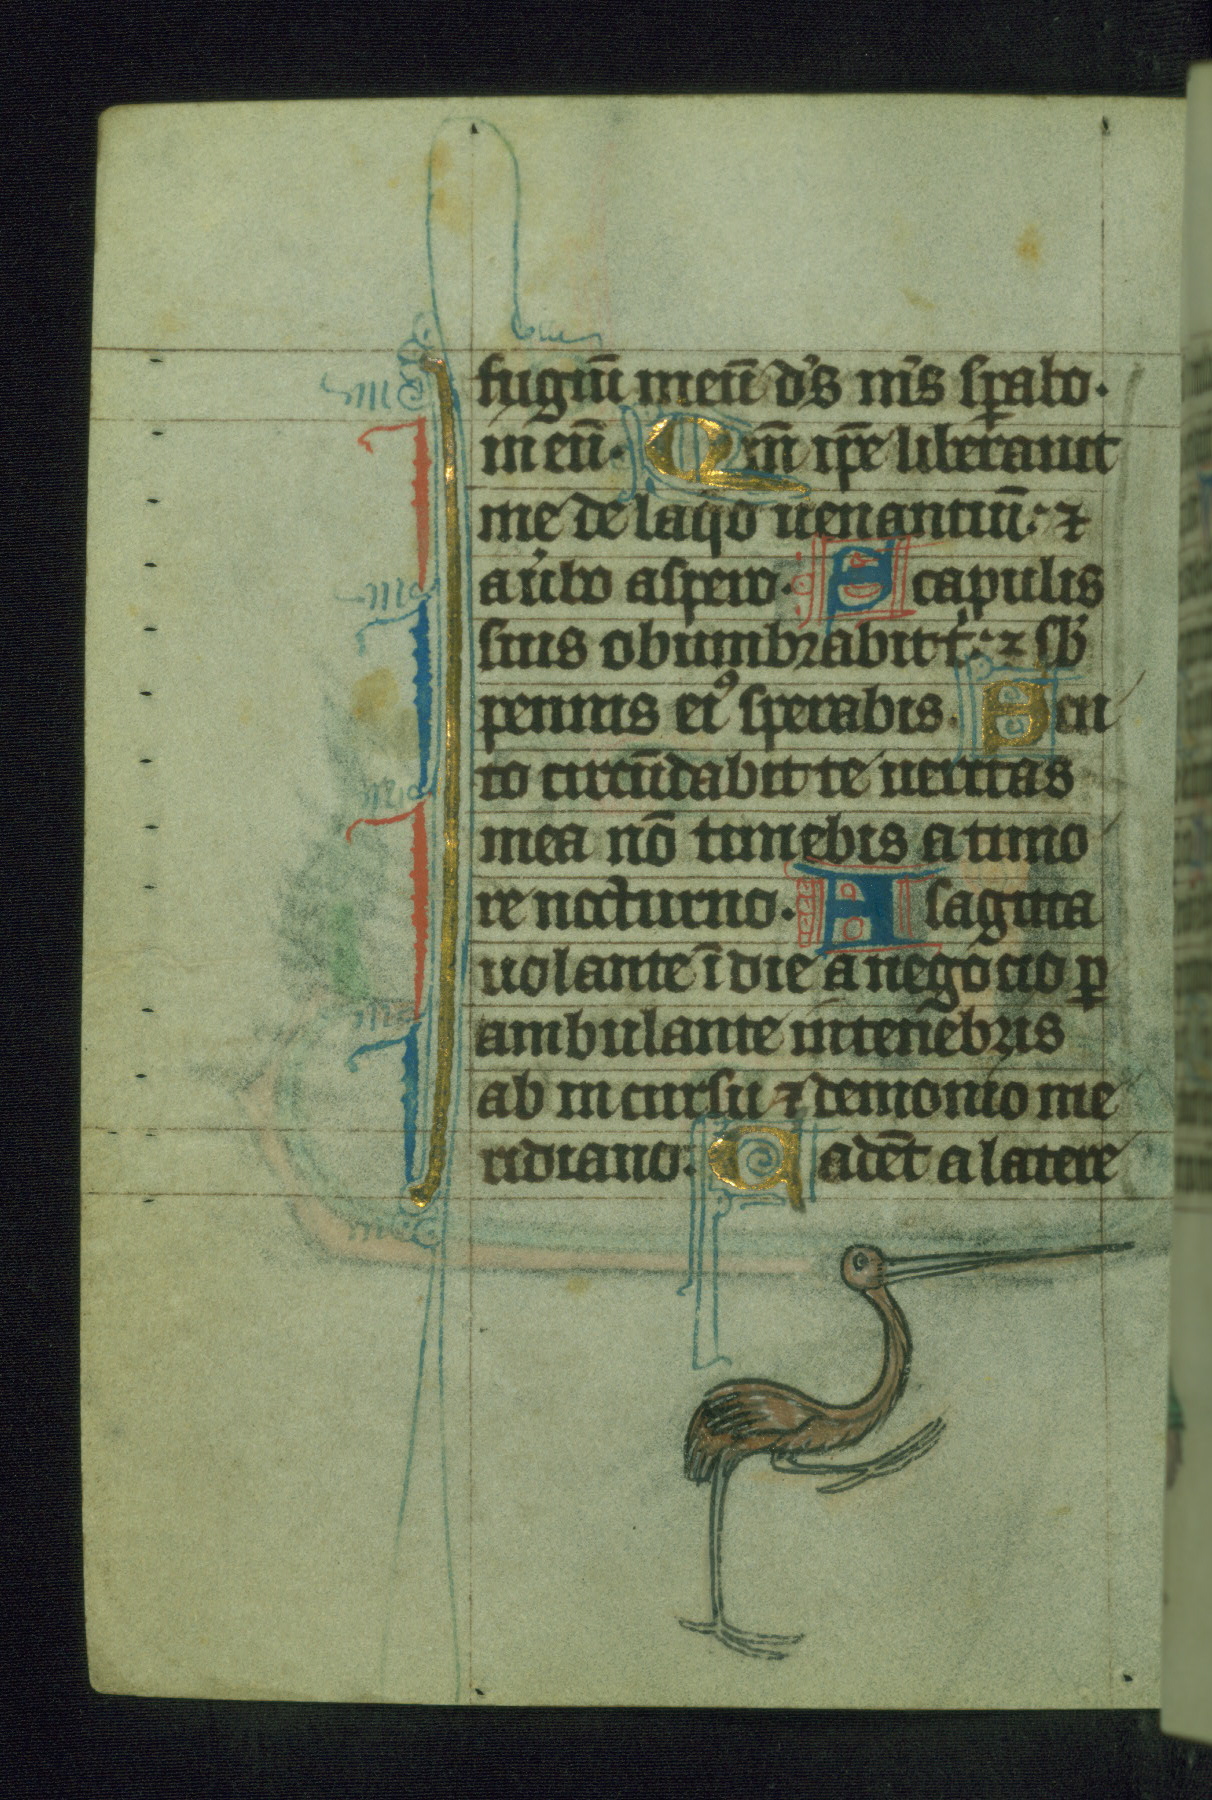 fugiū meū ds̄ ms̄ sꝑabo·
in eū· Qm̄ ip̄e liberauit
me de laq̇o uenantiū: ⁊
a úbo aspero· Scapulis
suis obumbrabit t̉: ⁊ sb̄
pennis eiꝰ sperabis· Scu
to circūdabit te ueritas
mea nō timebis a timo
re nocturno· A sagitta
uolante ī die a negocio ꝑ
ambulante in tenebris
ab incursu ⁊ demonio me
ridiano· Cadēt a latere